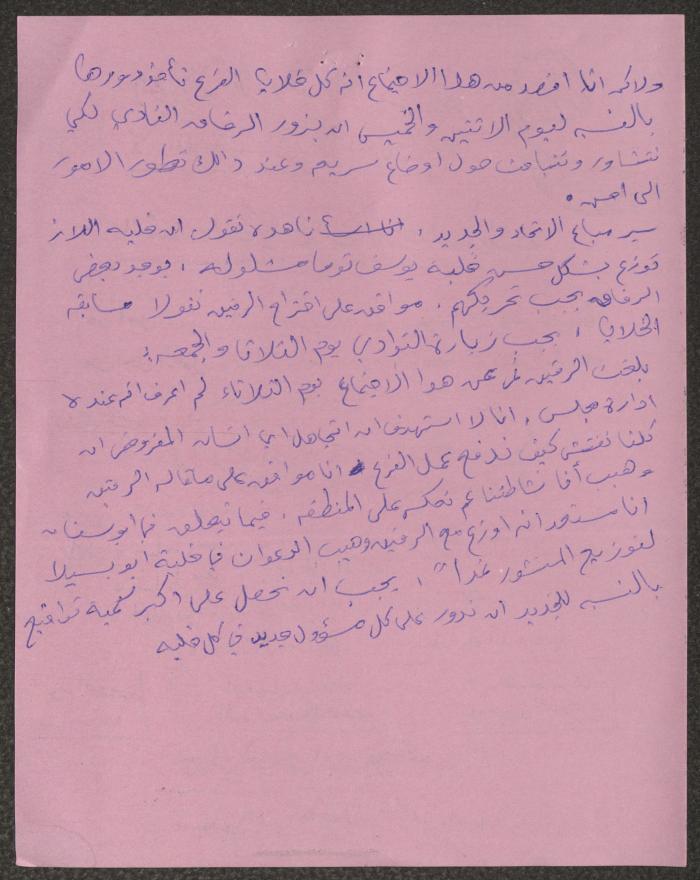 ولاكن انا اقصد من هذا الاجتماع انه كل خلايا الفرع تأخذ دورها
بالنسبه ليوم الاثنين والخميس ان يزور الرفاق النادي لكي
نتشاور ونتباحث حول اوضاع سريعه وعند ذالك تطور الامور
الى احسن .
سير مباع الاتحاد والجديد ، ناهده تقول ان خليه اللاز
توزع بشكل حسن خلية يوسف توما مشلوله ، يوجد بعض
الرفاق يجب تحريكهم . موافق على اقتراح الرفيق نقولا مسابقه
الخلايا ، يجب زيارة النوادي يوم الثلاثا والجمعه ؛
بلغت الرفيق نمر عن هذا الاجتماع يوم الثلاثاء لم اعرف انه عنده
ادارة مجلس ، انا لا استهدف ان اتجاهل اي انسان المفروض ان
كلنا نفتش كيف ندفع عمل الفرع انا موافق على ما قاله الرفيق
وهيب أنا نشاطنا عم نعكسه على المنطقه . فيما يتعلق في ابو سنان
انا مستعد انه اوزع مع الرفيق وهيب الدعوان في خلية ابو بسيلا
لتوزيع المنشور غداً ، يجب ان نحصل على اكبر كمية تواقيع
بالنسبه للجديد ان ندور على كل مسؤول جديد في كل خليه